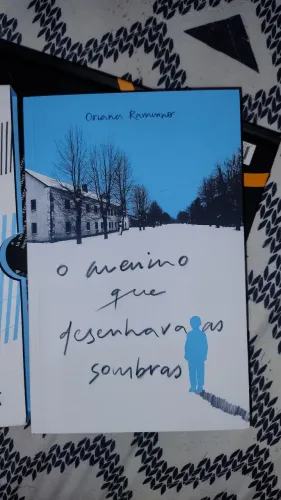 Oriana Ramunno
o menino
que
desenhava as
sombras